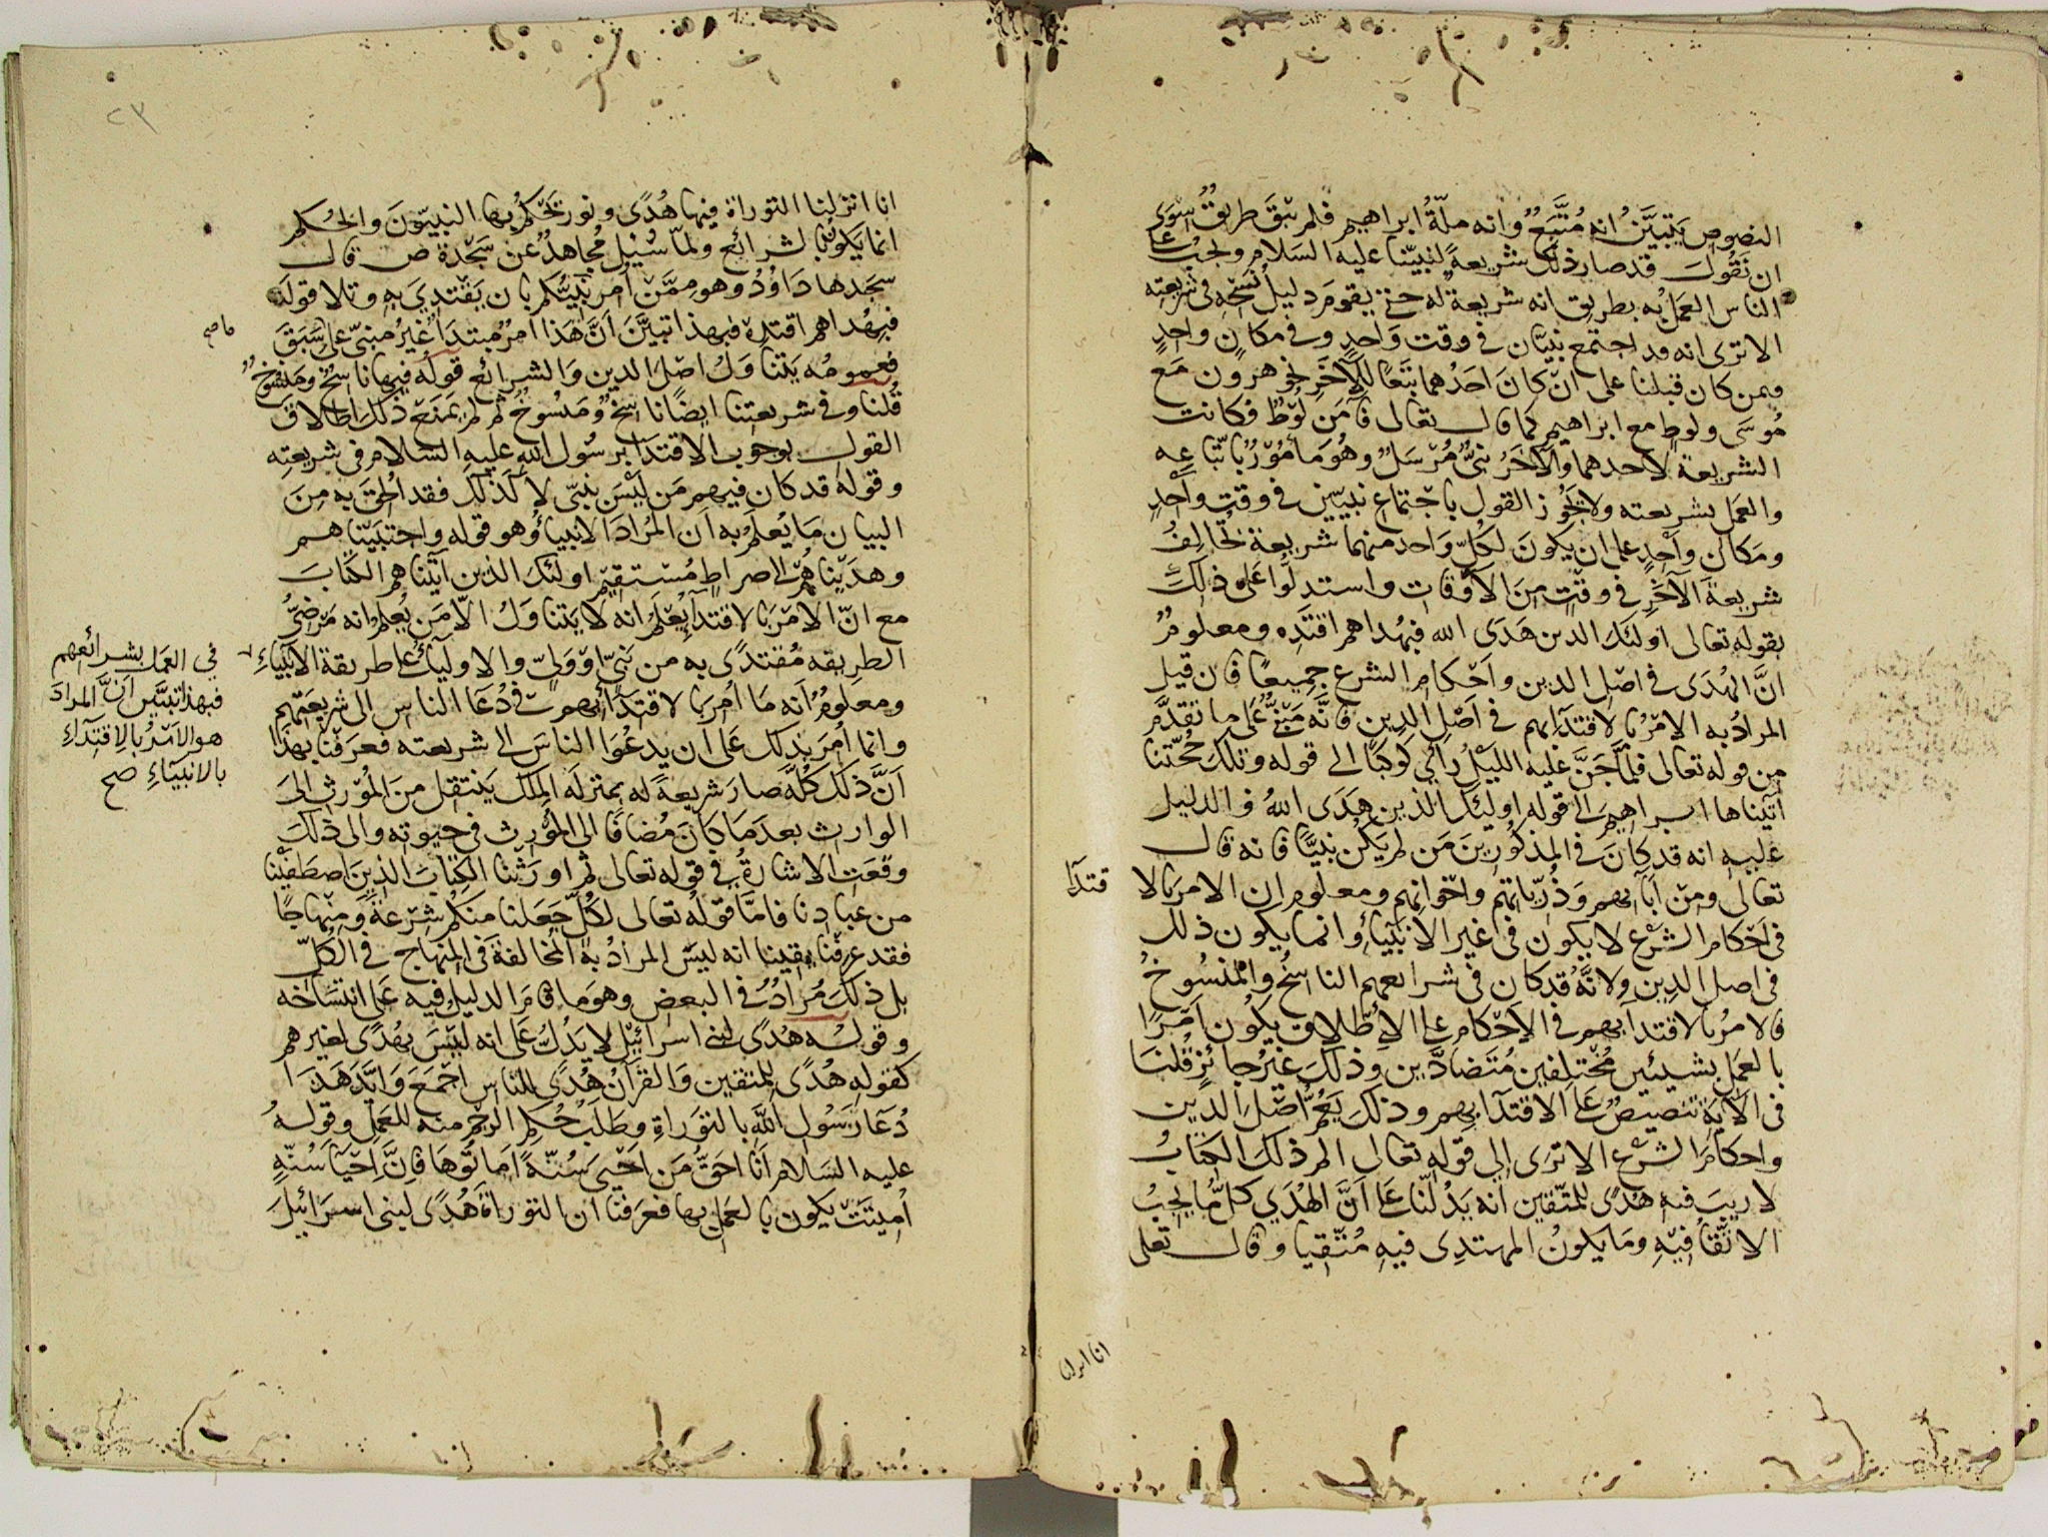 النصوص يتبيّن انه مُتّبعٌ وانه ملّةُ ابراهيم فلم يبق طريقٌ سوى
ان نقول قد صار ذلك شريعةً لنبيّنا عليه السلام ويجبُ على
الناس العمل به بطريق انه شريعة له حتى يقوم دليل نسخه في شريعته
الا ترى انه قد اجتمع نبيّان في وقت واحدٍ وفي مكانٍ واحدٍ
فيمن كان قبلنا على ان كان احدهما تبعًا للآخر نحو هرون مع
موسى ولوط مع ابراهيم كما قال تعالى فآمن له لوطٌ فكانت
الشريعة لاحدهما والآخر نبيٌّ مُرسلٌ وهو مأمورٌ باتّباعه
والعمل بشريعته ولا يجوز القول باجتماع نبيّين في وقتٍ واحدٍ
ومكان واحدٍ على ان يكون لكلّ واحد منهما شريعة تخالف
شريعة الآخر في وقتٍ من الاوقات واستدلوا على ذلك
بقوله تعالى اولئك الذين هدى الله فبهداهم اقتده ومعلومٌ
انّ الهُدى في اصل الدين واحكام الشرع جميعًا فان قيل
المرادُ به الامر بالاقتدآء بهم في اصل الدين فانّه مبنيٌّ على ما تقدّم
من قوله تعالى فلمّا جنّ عليه الليل رأى كوكبًا الى قوله وتلك حجّتنا
آتيناها ابراهيم الى قوله اولئك الذين هدى اللهُ والدليل
عليه انه قد كان في المذكورين من لم يكن نبيًّا فانه قال
تعالى ومن آبآئهم وذُرّياتهم واخوانهم ومعلوم ان الامر بالا
قتدآء
في احكام الشرع لا يكون في غير الانبيآء وانما يكون ذلك
في اصل الدين ولانّه قد كان في شرائعهم الناسخُ والمنسوخُ
فالامرُ بالاقتدآء بهم في الاحكام على الاطلاق يكون امرًا
بالعمل بشيئين مختلفين متضادّين وذلك غير جائزٍ قلنا
في الآية تنصيصٌ على الاقتدآء بهم وذلك يعُمُّ اصل الدين
واحكام الشرع الا ترى الى قوله تعالى الم ذلك الكتابُ
لا ريب فيه هدًى للمتّقين انه يدلّنا على انّ الهُدى كلّ ما يجبُ
الاتّقآءُ فيه وما يكون المهتدي فيه مُتّقيا وقال تعالى
انا انزلنا
انا انزلنا التوراة فيها هُدًى ونور يحكمُ بها النبيّونَ والحُكم
انما يكونُ بالشرائع ولمّا سُئِل مُجاهدٌ عن سجدة ص قال
سجدها داوُدُ وهو ممّن اُمر نبيُّكم بان يقتدي به وتلا قوله
فبهُداهم اقتده فبهذا تبيّن انّ هذا امرٌ مُبتدأ غيرُ مبنيّ على سبق
ما صح
فعمومُه يتناول اصل الدين والشرائع قولُه فيها ناسخٌ ومنسوخٌ
قُلنا وفي شريعتنا ايضًا ناسخٌ ومنسوخٌ ثم لم يمنع ذلك اطلاق
القول بوجوب الاقتدآء برسول الله عليه السلام في شريعته
وقوله قد كان فيهم من ليس بنبيّ لا كذلك فقد اُلحق به من
البيان ما يُعلم به ان المُراد الانبيآءُ وهو قوله واجتبيناهم
وهديناهُم الى صراطٍ مُستقيم اولئك الذين آتيناهم الكتاب
مع انّ الامر بالاقتدآء يُعلم انه لا يتناولُ الّا من يُعلم انه مرضيُّ
الطريقه مُقتدًى به من نبيّ او وليّ والاوليآءُ على طريقة الانبيآءِ
في العمل بشرائعهم
فبهذا تبيّن انّ المرادَ
هو الامرُ بالاقتدآءِ
بالانبيآءِ صح
ومعلومٌ انه ما اُمر بالاقتدآء بهم في دُعآء الناس الى شريعتهم
وانما اُمر بذلك على ان يدعُوَا الناس الى شريعته فعرفنا بهذا
انّ ذلك كلّه صار شريعةً له بمنزلة المِلك ينتقل من المُورّث الى
الوارث بعد ما كان مُضافًا الى المُورّث في حيوته والى ذلك
وقعت الاشارةُ في قوله تعالى ثم اورثنا الكتاب الذين اصطفينا
من عبادنا فامّا قولُه تعالى لكلّ جعلنا منكم شرعةً ومنهاجًا
فقد عرفنا يقينا انه ليس المراد به المخالفة في المنهاج في الكلّ
بل ذلك مُرادٌ في البعض وهو ما قام الدليل فيه على انتساخه
وقوله هدًى لبني اسرائيل لا يدُلُّ على انه ليس بهُدًى لغيرهم
كقوله هُدًى للمتقين والقرآنُ هُدًى للناس اجمع وايّد هذا
دُعآءُ رسول الله بالتوراةِ وطلبُ حُكم الرجم منه للعمل وقولُه
عليه السلام انا احقُّ من احيى سُنّةً اماتُوها فانّ احيآءَ سُنّةٍ
اُميتت يكون بالعمل بها فعرفنا ان التوراة هُدًى لبني اسرائيل
٢٣